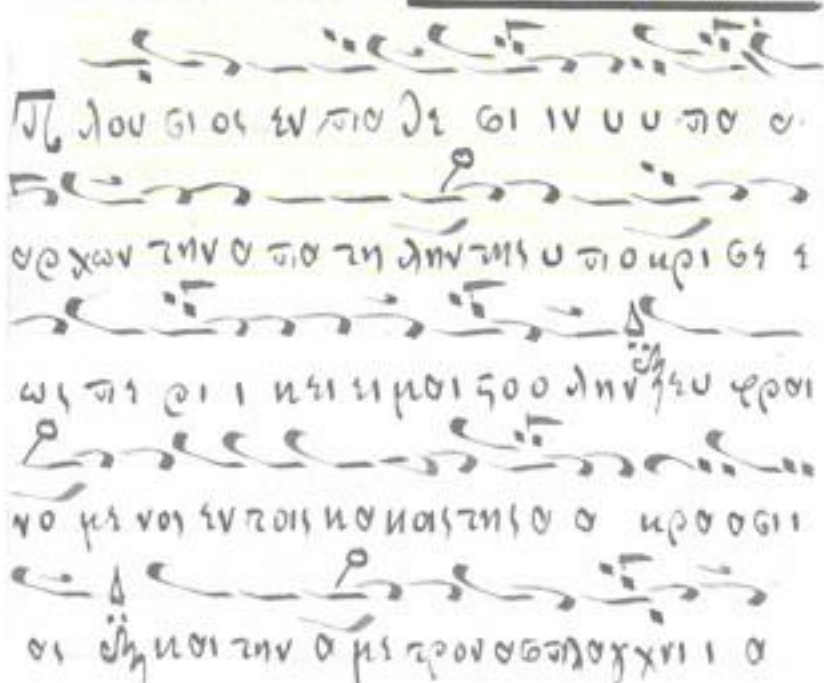 Π λου σι ος εν πα θε σι ιν υ υ πα α
αρ χων την α πα τη λην της υ πο κρι σε ε
ως πε ρι ι κει ει μαι ϛο ο λην ευ φραι
νο με νος εν τοις κα κοις της α α κρα α σι ι
ας και την α με τρον α σπλαγ χνι ι α